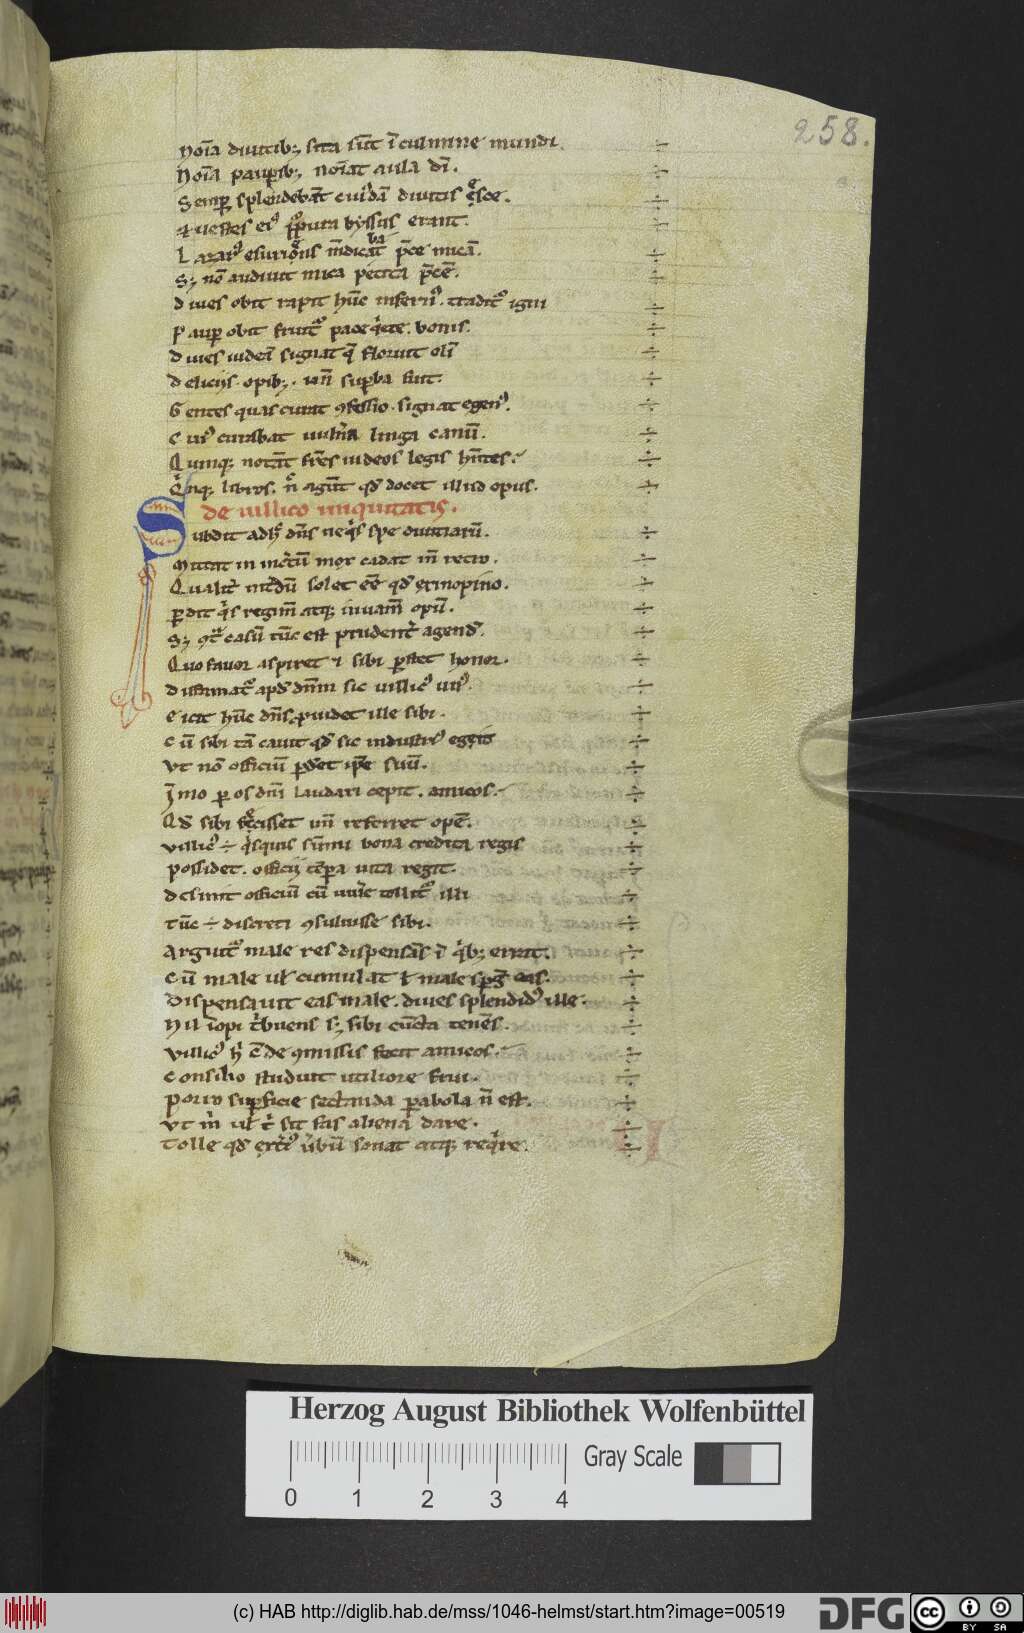 258.
Noīa diuitib; sita sūt ī culmine mundi.
Noīa paup̄ib; noīat aula dī.
Semp̱ splendebāt cuidā diuitis ęsce.
⁊ uestes ei᷒ purpura byssus erant.
Lazar᷒ esuriens mēdicabat p̄ce micā.
S; nō audiuit mica petita p̄cē.
Diues obit rapit hūc infern᷒. tradit᷒ igni
Paup̱ obit fruit᷒ pace q'ete. bonis.
Diues iudeā signat q̄ floruit olī
Deliciis. opib;. un̄ sup̱ba fuit.
Gentes quas curat ꝯfessio. signat egen᷒.
Cui᷒ curabat uuln̄a linga canū.
Quinq; notāt fr̄es iudeos legis hn̄tes.
Q'nq; libros. n̄ agūt qd̄ docet illud opus.
de uillico iniquitatis.
Subdit adh̄ dn̄s neq's spe diuitiarū.
Mittat in inc̄tū mox cadat in̄ recto.
Qualit̄ int̄dū solet eē qd̄ ex inopino.
p̱dit q's regim̄ atq; iuuam̄ opū.
S; ꝯt̄ casū tūc est prudent̄ agend᷒.
Quo fauor aspiret ⁊ sibi p̱stet honor.
Diffamat᷒ apd̄ dn̄m sic uillic᷒ un᷒.
Eicit hūc dn̄s. ꝓuidet ille sibi.
Cū sibi tā cauit qd̄ sic industri᷒ egen᷒
Vt nō officiū p̱det ip̄e suū.
Īmo p̱ os dn̄i laudari cepit. amicos.
Qd̄ sibi fecisset un̄ referret opē.
Villic᷒ ÷ q'squis sūmi bona credita regis
possidet. officii tēpa uita regit.
Desinit officiū cū uiuē tollit᷒ illi
Tūc ÷ discreti ꝯsuluisse sibi.
Arguit᷒ male res dispensās ī q'b; errat.
Cū male ul̄ cumulat ł male spḡ eas.
Dispensauit eas male. diues splendid᷒ ille.
Nil īopi t'buens s; sibi cūcta tenēs.
Villic᷒ h' ē de ꝯmissis fecit amicos.
Consilio studuit utiliore frui.
Porro sup̱ficie sectanda p̱abola n̄ est.
Vt m' ul̄ t' sit fas aliena dare.
Tolle qd̄ ext᷒i᷒ ūbū sonat atq; req're.
Herzog August Bibliothek Wolfenbüttel
0 1 2 3 4
Gray Scale
(c) HAB http://diglib.hab.de/mss/1046-helmst/start.htm?image=00519
DFG
cc BY SA